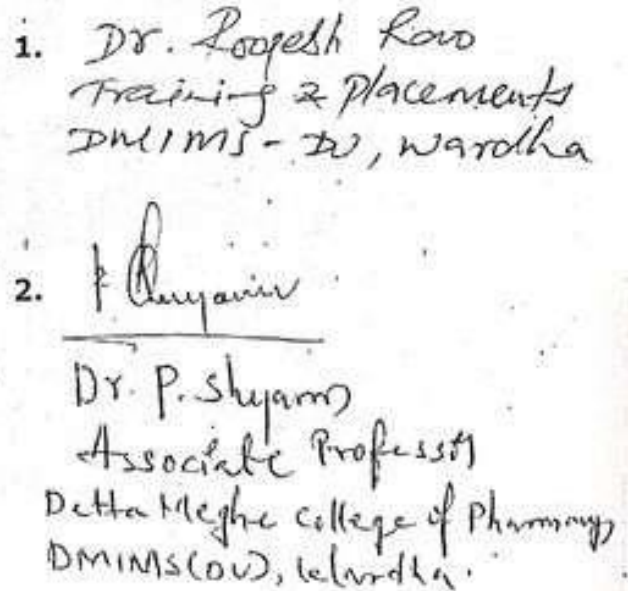 1. Dr. Roopesh Rao
Training & Placements
DMIMS - DU, Wardha
2.
Dr. P. Shyam
Associate Professor
Datta Meghe College of Pharmacy,
DMIMS(DU), Wardha.